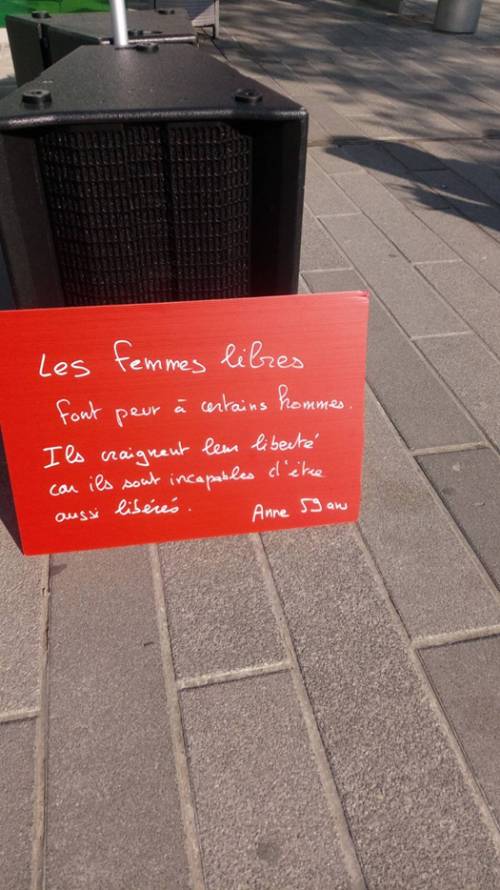 Les femmes libres
font peur à certains hommes.
Ils craignent leur liberté
car ils sont incapables d'être
aussi libérés.
Anne 59 ans